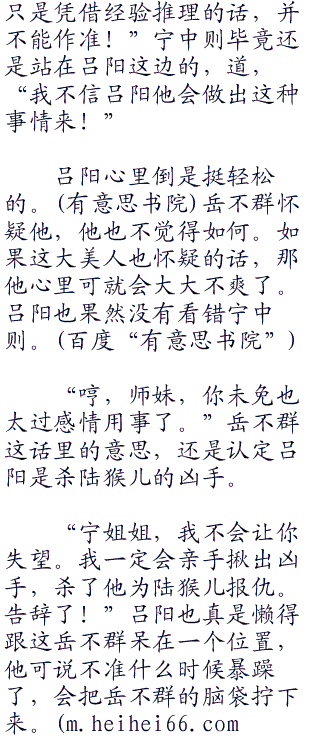 只是凭借经验推理的话，并
不能作准！”宁中则毕竟还
是站在吕阳这边的，道，
“我不信吕阳他会做出这种
事情来！”
吕阳心里倒是挺轻松
的。(有意思书院)岳不群怀
疑他，他也不觉得如何。如
果这大美人也怀疑的话，那
他心里可就会大大不爽了。
吕阳也果然没有看错宁中
则。(百度“有意思书院”)
“哼，师妹，你未免也
太过感情用事了。”岳不群
这话里的意思，还是认定吕
阳是杀陆猴儿的凶手。
“宁姐姐，我不会让你
失望。我一定会亲手揪出凶
手，杀了他为陆猴儿报仇。
告辞了！”吕阳也真是懒得
跟这岳不群呆在一个位置，
他可说不准什么时候暴躁
了，会把岳不群的脑袋拧下
来。(m.heihei66.com